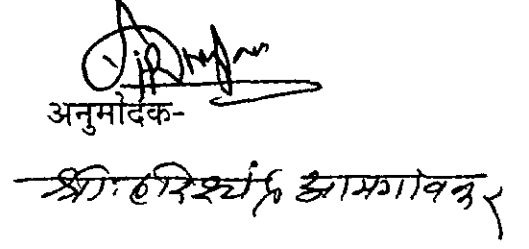 अनुमोदक-
श्री. हरिश्चंद्र आमगावकर